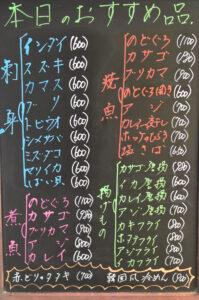 本日のおすすめ品.
刺身
インダイ (600)
スズキ (600)
カマス (600)
ブリ (600)
トビウオ (600)
シメサバ (600)
ミズダコ (600)
マツイカ (600)
ばい貝 (600)
煮魚
のどぐろ (1100)
カサゴ
ブリカマ
アジ (800)
カレイ
焼魚
のどぐろ (1100)
カサゴ
ブリカマ (700)
のどぐろ開き
アジ
カレイ一夜干し (700)
ホッケ
塩さば (600)
揚げもの
カサゴ唐揚
イカ唐揚
カレイ唐揚
アジ唐揚
カキフライ
ホタテフライ
アジフライ
赤とりのタタキ (700)
韓国風冷めん